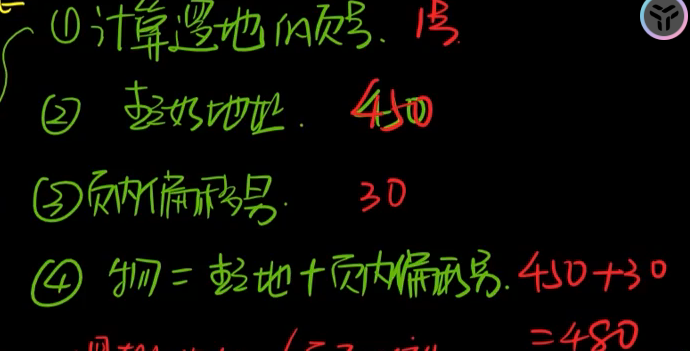 ①计算逻地的页号. 1号.
② 起始地址. 450
③页内偏移号. 30
④ 物=起地+页内偏移号. 450+30
=480